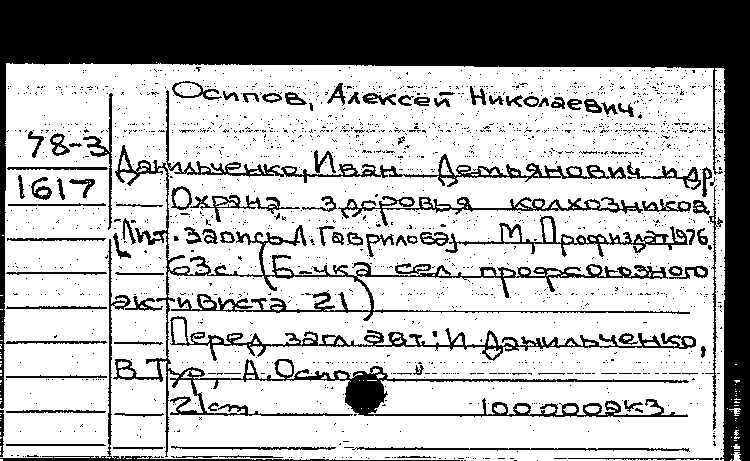 Осипов, Алексей Николаевич.
78-3
1617
Данильченко, Иван Демьянович и др.
Охрана здоровья колхозников.
[Лит. запись Л. Гаврилова]. М., Профиздат, 1976.
63с. (Б-чка сел. профсоюзного
активиста. 21)
Перед загл. авт.: И Данильченко,
В. Тур, А. Осипов.
21см. 100 000экз.